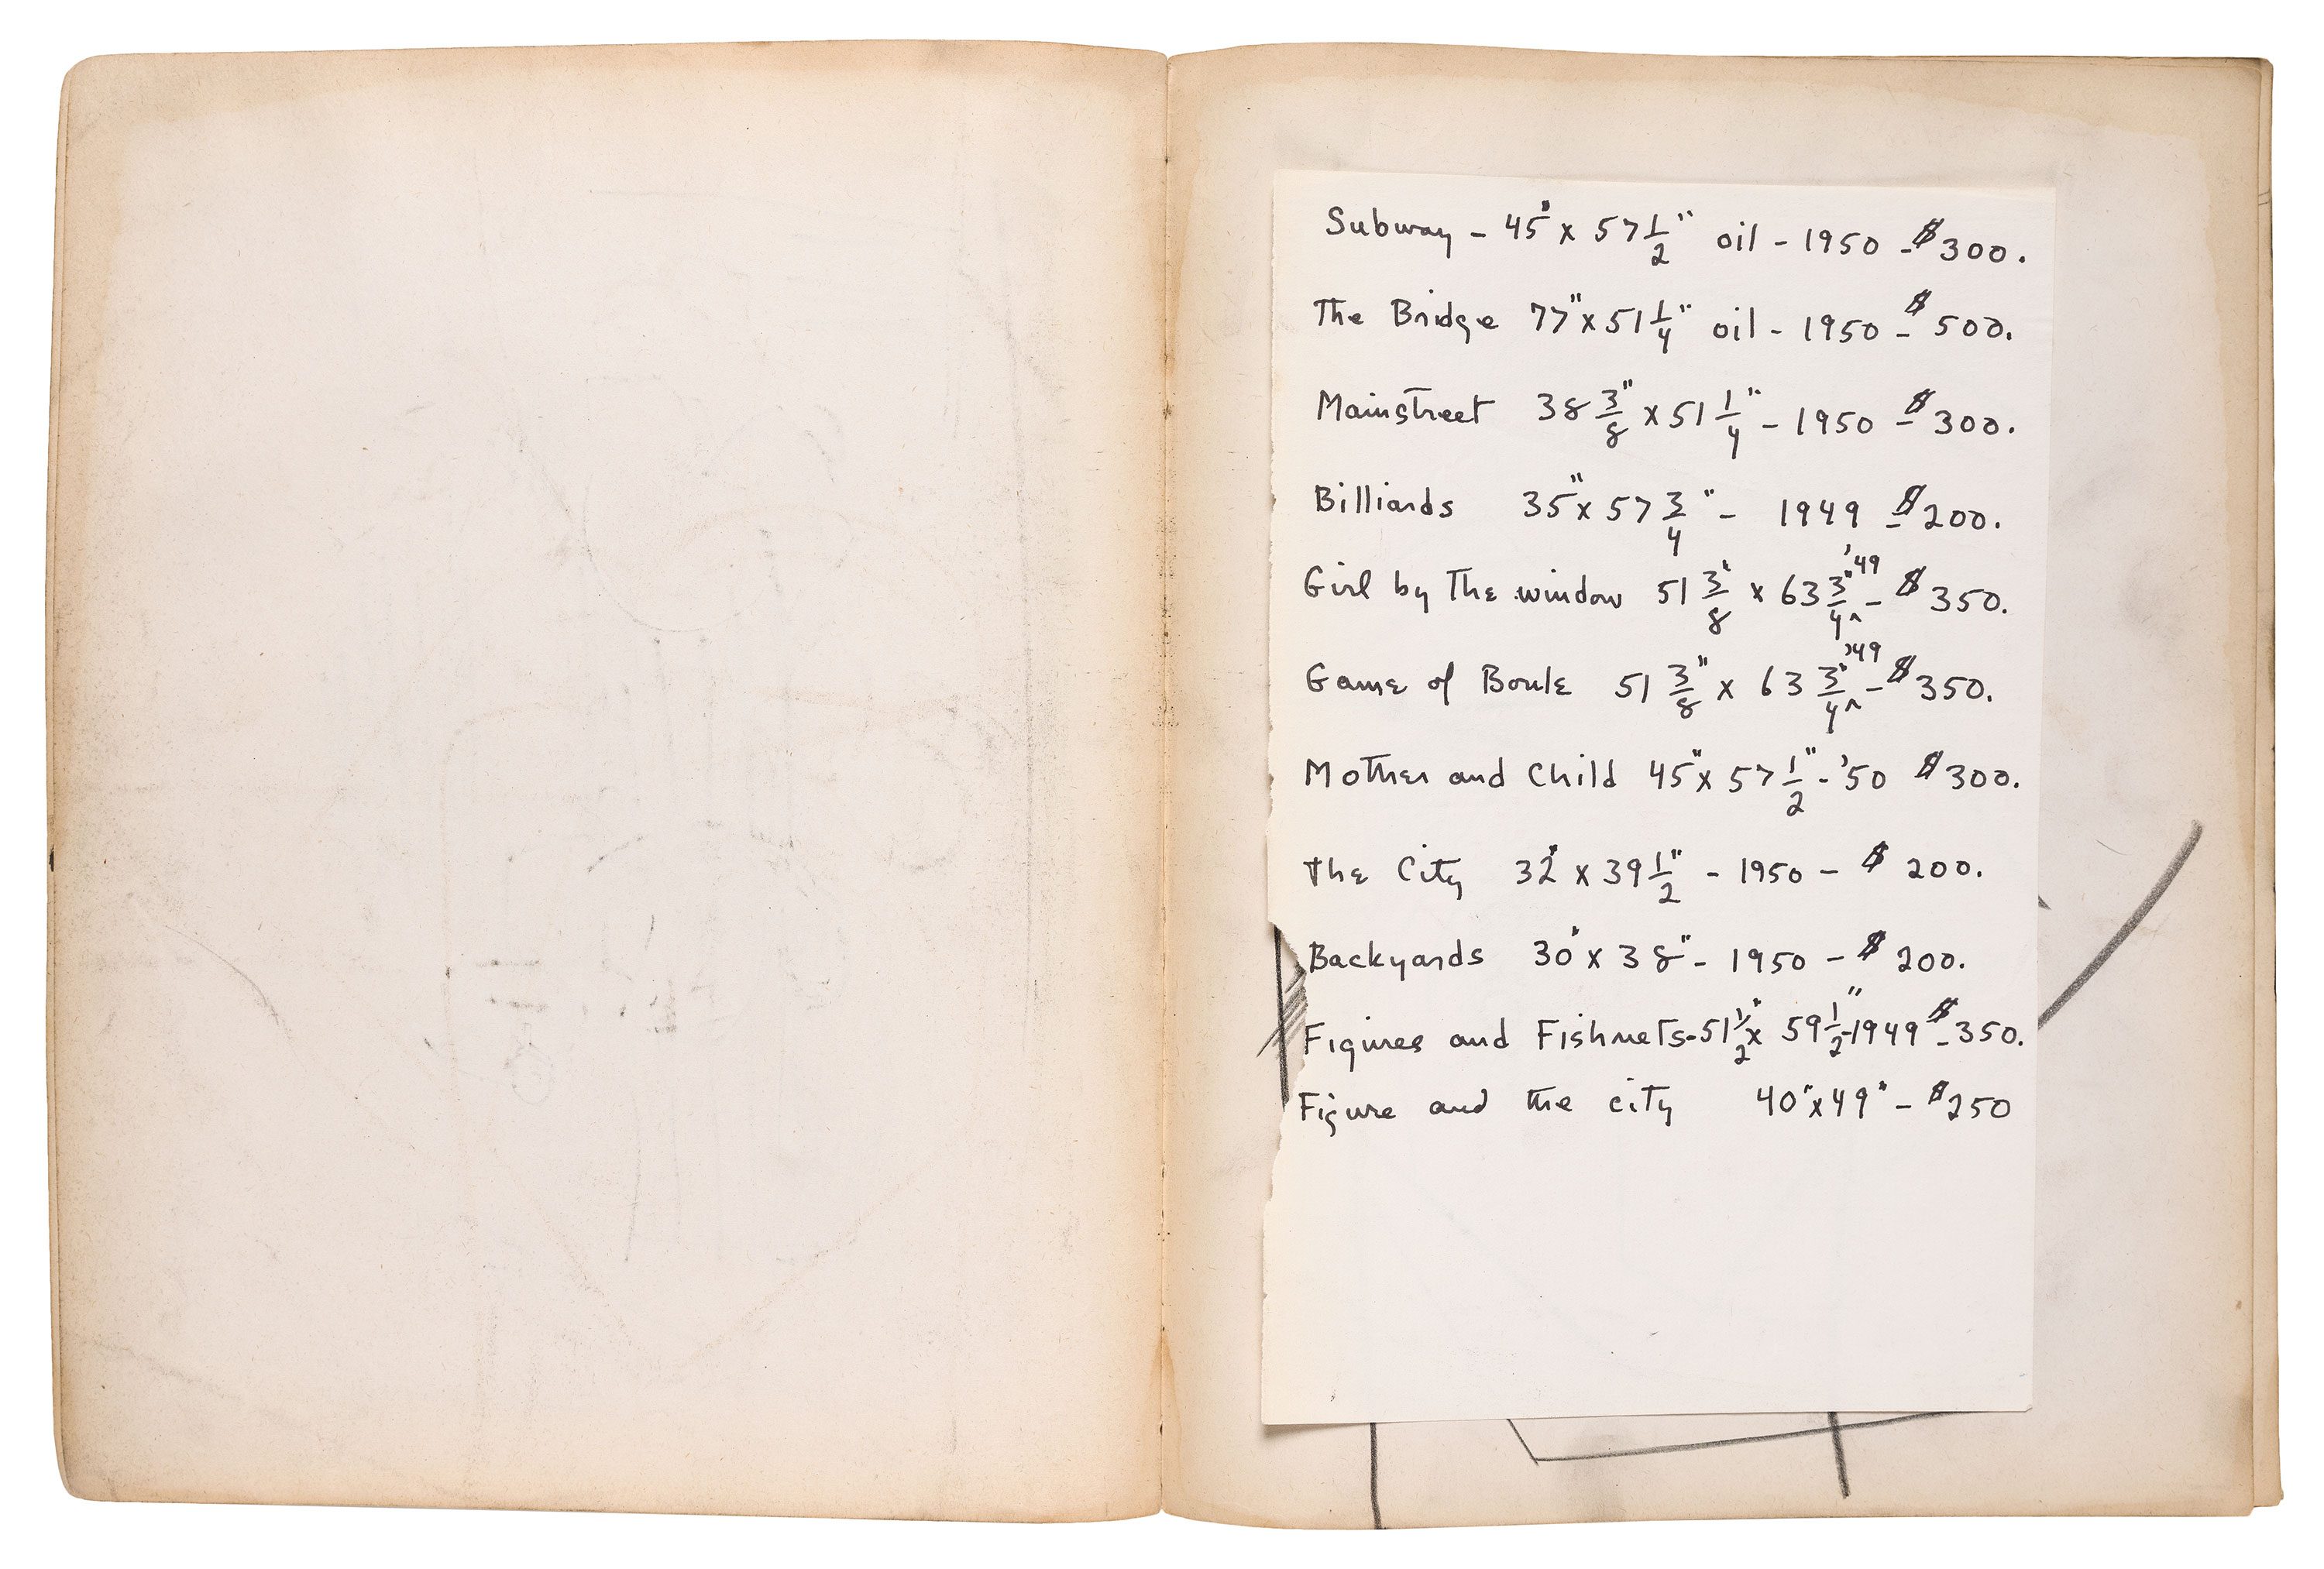 Subway - 45" x 57 1/2" oil - 1950 - $300.
The Bridge 77" x 51 1/4" oil - 1950 - $500.
Mainstreet 38 3/8" x 51 1/4" - 1950 - $300.
Billiards 35" x 57 3/4" - 1949 - $200.
Girl by the window 51 3/8" x 63 3/4" '49 - $350.
Game of Boule 51 3/8" x 63 3/4" '49 - $350.
Mother and Child 45" x 57 1/2" - '50 $300.
The City 32" x 39 1/2" - 1950 - $200.
Backyards 30" x 38" - 1950 - $200.
Figures and Fishnets - 51 1/2" x 59 1/2" - 1949 - $350.
Figure and the city 40" x 49" - $250